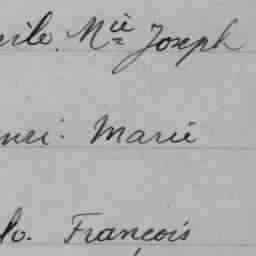 cile. Mie Joseph
nri. Marie
lo. François